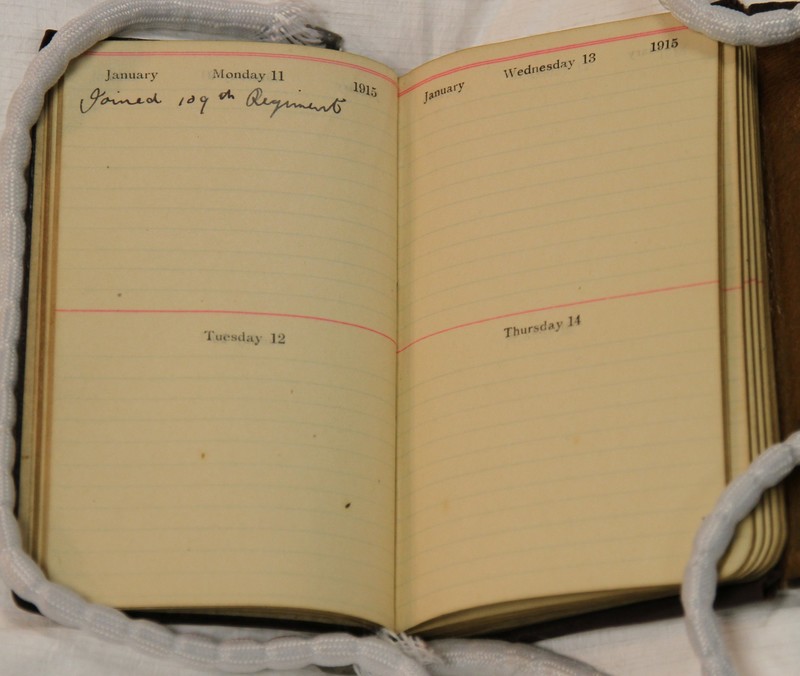 January Monday 11 1915
Joined 109th Regiment
Tuesday 12
January Wednesday 13 1915
Thursday 14